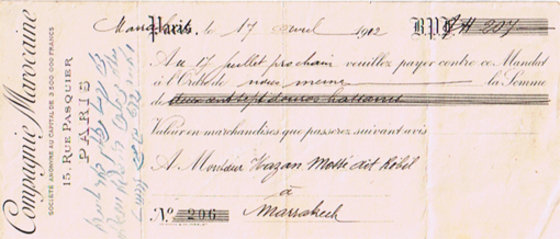 Compagnie Marocaine
SOCIÉTÉ ANONYME AU CAPITAL DE 2.500.000 FRANCS
15, RUE PASQUIER
PARIS
Marrakech Paris, le 17 avril 1912 B.P. 207
Au 17 juillet prochain veuillez payer contre ce Mandat
à l'Ordre de nous même la Somme
de deux cent sept douros hassani
Valeur en marchandises que passerez suivant avis
A Monsieur Hazan Messé dit Kobil
à
Nº 206 Marrakech